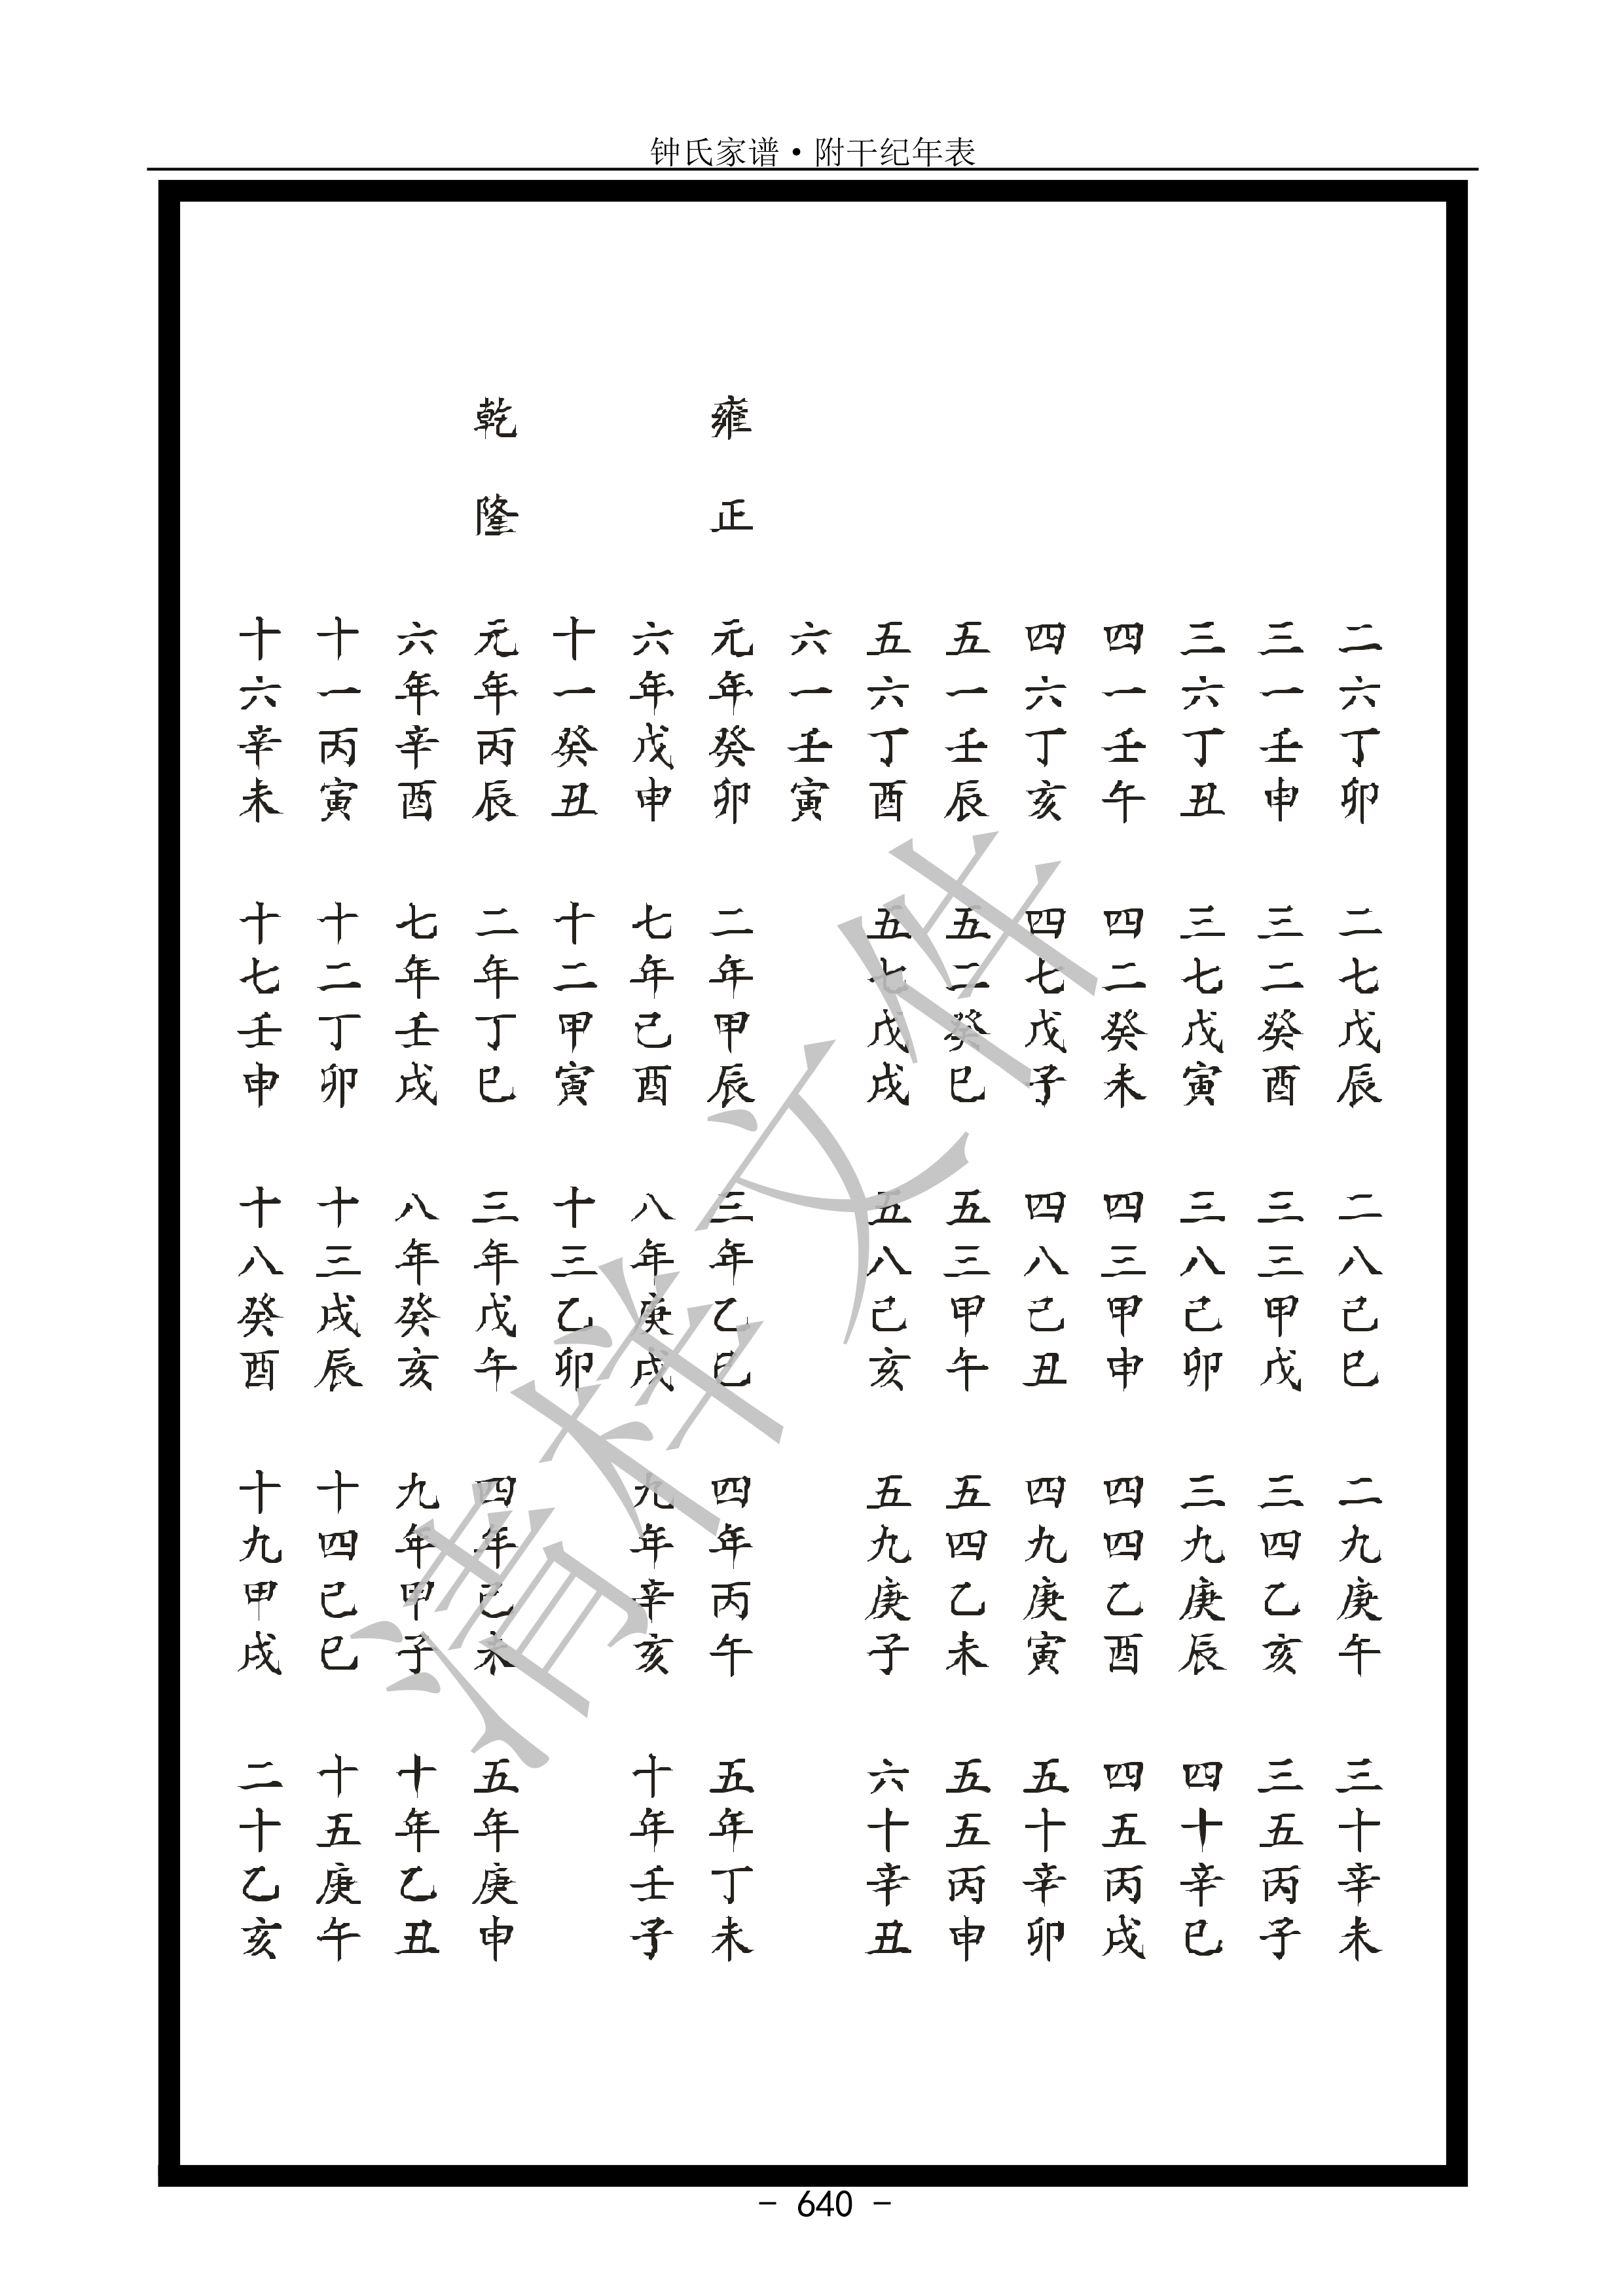 钟氏家谱·附干纪年表
二六丁卯 二七戊辰 二八己巳 二九庚午 三十辛未
三一壬申 三二癸酉 三三甲戊 三四乙亥 三五丙子
三六丁丑 三七戊寅 三八己卯 三九庚辰 四十辛巳
四一壬午 四二癸未 四三甲申 四四乙酉 四五丙戌
四六丁亥 四七戊子 四八己丑 四九庚寅 五十辛卯
五一壬辰 五二癸巳 五三甲午 五四乙未 五五丙申
五六丁酉 五七戊戌 五八己亥 五九庚子 六十辛丑
六一壬寅
雍正 元年癸卯 二年甲辰 三年乙巳 四年丙午 五年丁未
六年戊申 七年己酉 八年庚戌 九年辛亥 十年壬子
十一癸丑 十二甲寅 十三乙卯
乾隆 元年丙辰 二年丁巳 三年戊午 四年己未 五年庚申
六年辛酉 七年壬戌 八年癸亥 九年甲子 十年乙丑
十一丙寅 十二丁卯 十三戌辰 十四己巳 十五庚午
十六辛未 十七壬申 十八癸酉 十九甲戌 二十乙亥
清样文件
- 640 -